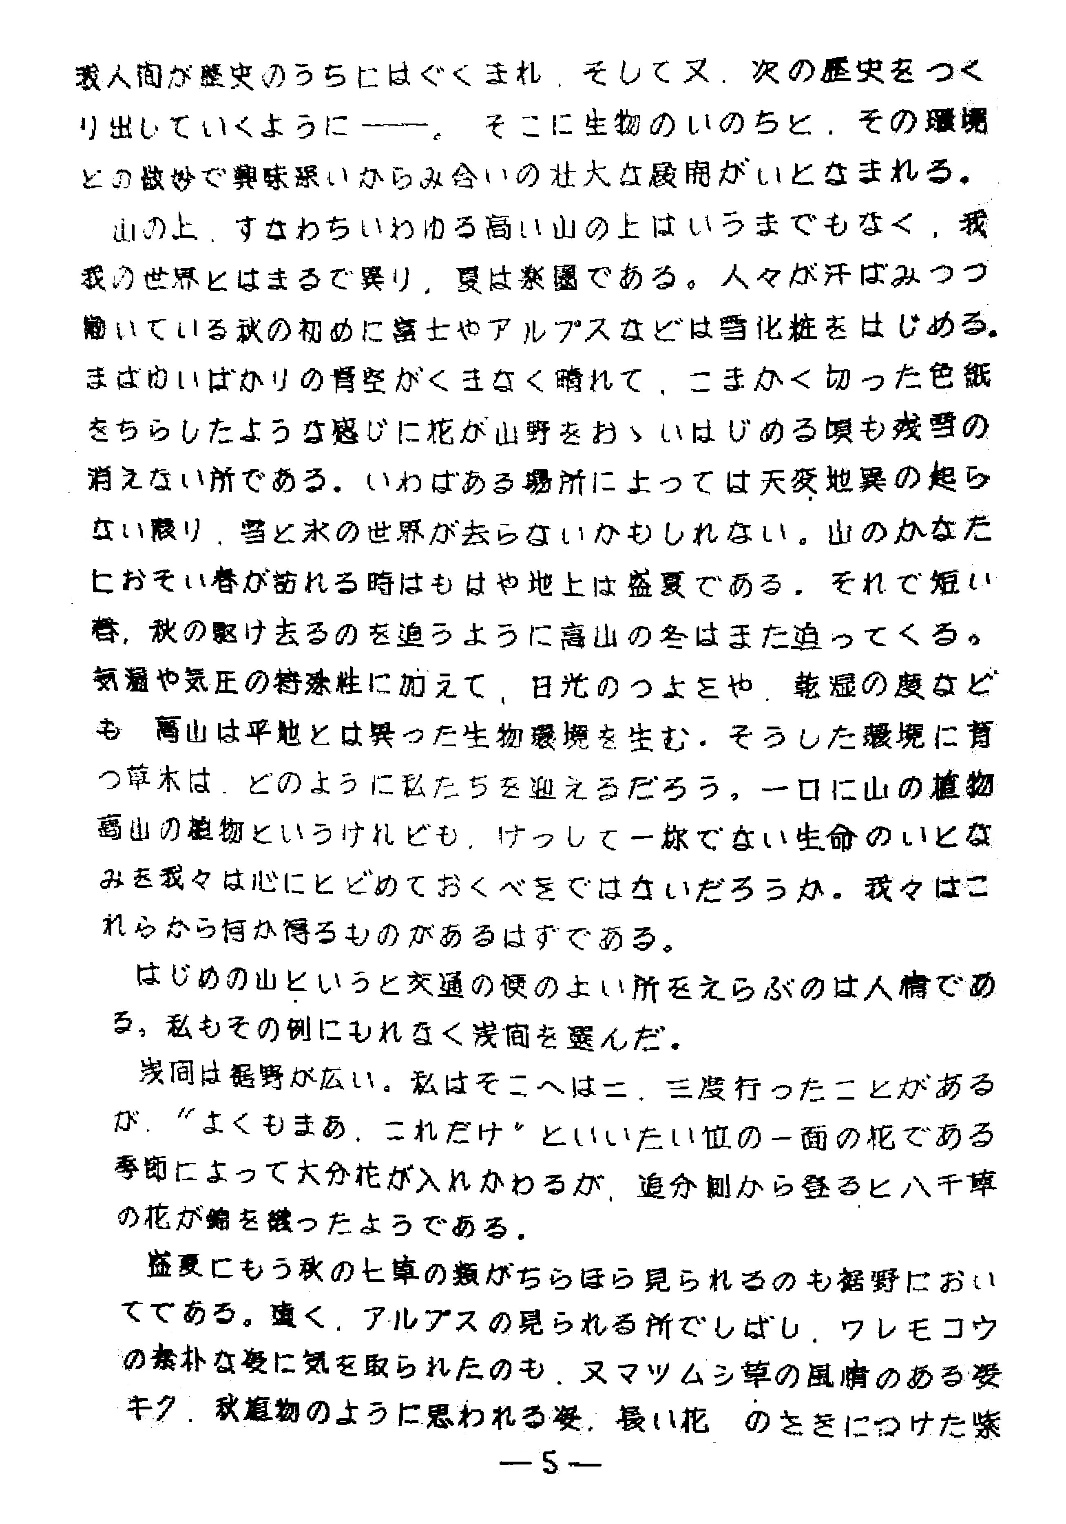 我人間が歴史のうちにはぐくまれ、そして又、次の歴史をつく
り出していくように――。そこに生物のいのちと、その環境
との微妙で興味深いからみ合いの壮大な展開がいとなまれる。
山の上、すなわちいわゆる高い山の上はいうまでもなく、我
我の世界とはまるで異り、夏は楽園である。人々が汗ばみつつ
働いている秋の初めに富士やアルプスなどは雪化粧をはじめる。
まばゆいばかりの青空がくまなく晴れて、こまかく切った色紙
をちらしたような感じに花が山野をおゝいはじめる頃も残雪の
消えない所である。いわばある場所によっては天変地異の起ら
ない限り、雪と氷の世界が去らないかもしれない。山のかなた
におそい春が訪れる時はもはや地上は盛夏である。それで短い
春、秋の駆け去るのを追うように高山の冬はまた迫ってくる。
気温や気圧の特殊性に加えて、日光のつよさや、乾湿の度など
も 高山は平地とは異った生物環境を生む。そうした環境に育
つ草木は、どのように私たちを迎えるだろう。一口に山の植物
高山の植物というけれども、けっして一様でない生命のいとな
みを我々は心にとどめておくべきではないだろうか。我々はこ
れらから何か得るものがあるはずである。
はじめの山というと交通の便のよい所をえらぶのは人情であ
る。私もその例にもれなく浅間を選んだ。
浅間は裾野が広い。私はそこへは二、三度行ったことがある
が、〝よくもまあ、これだけ〟といいたい位の一面の花である
季節によって大分花が入れかわるが、追分側から登ると八千草
の花が錦を織ったようである。
盛夏にもう秋の七草の類がちらほら見られるのも裾野におい
てである。遠く、アルプスの見られる所でしばし、ワレモコウ
の素朴な姿に気を取られたのも、又マツムシ草の風情のある姿
キク、秋植物のように思われる姿、長い花 のさきにつけた紫
―5―